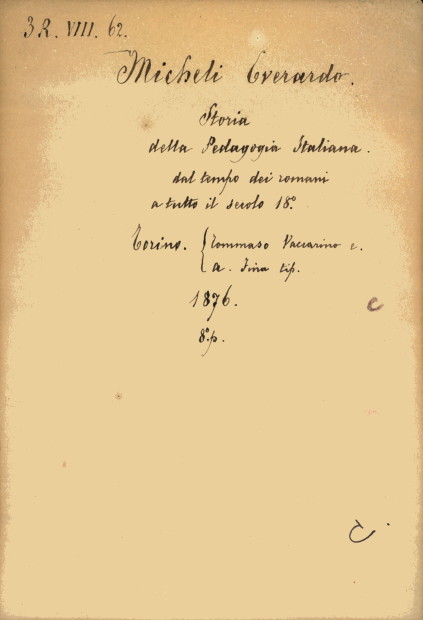 3 R. VIII. 62.
Micheli Everardo.
Storia
della Pedagogia Italiana.
dal tempo dei romani
a tutto il secolo 18º.
Torino. { Tommaso Vaccarino e.
A. Fina tip.
1876.
8º p.
C
C.